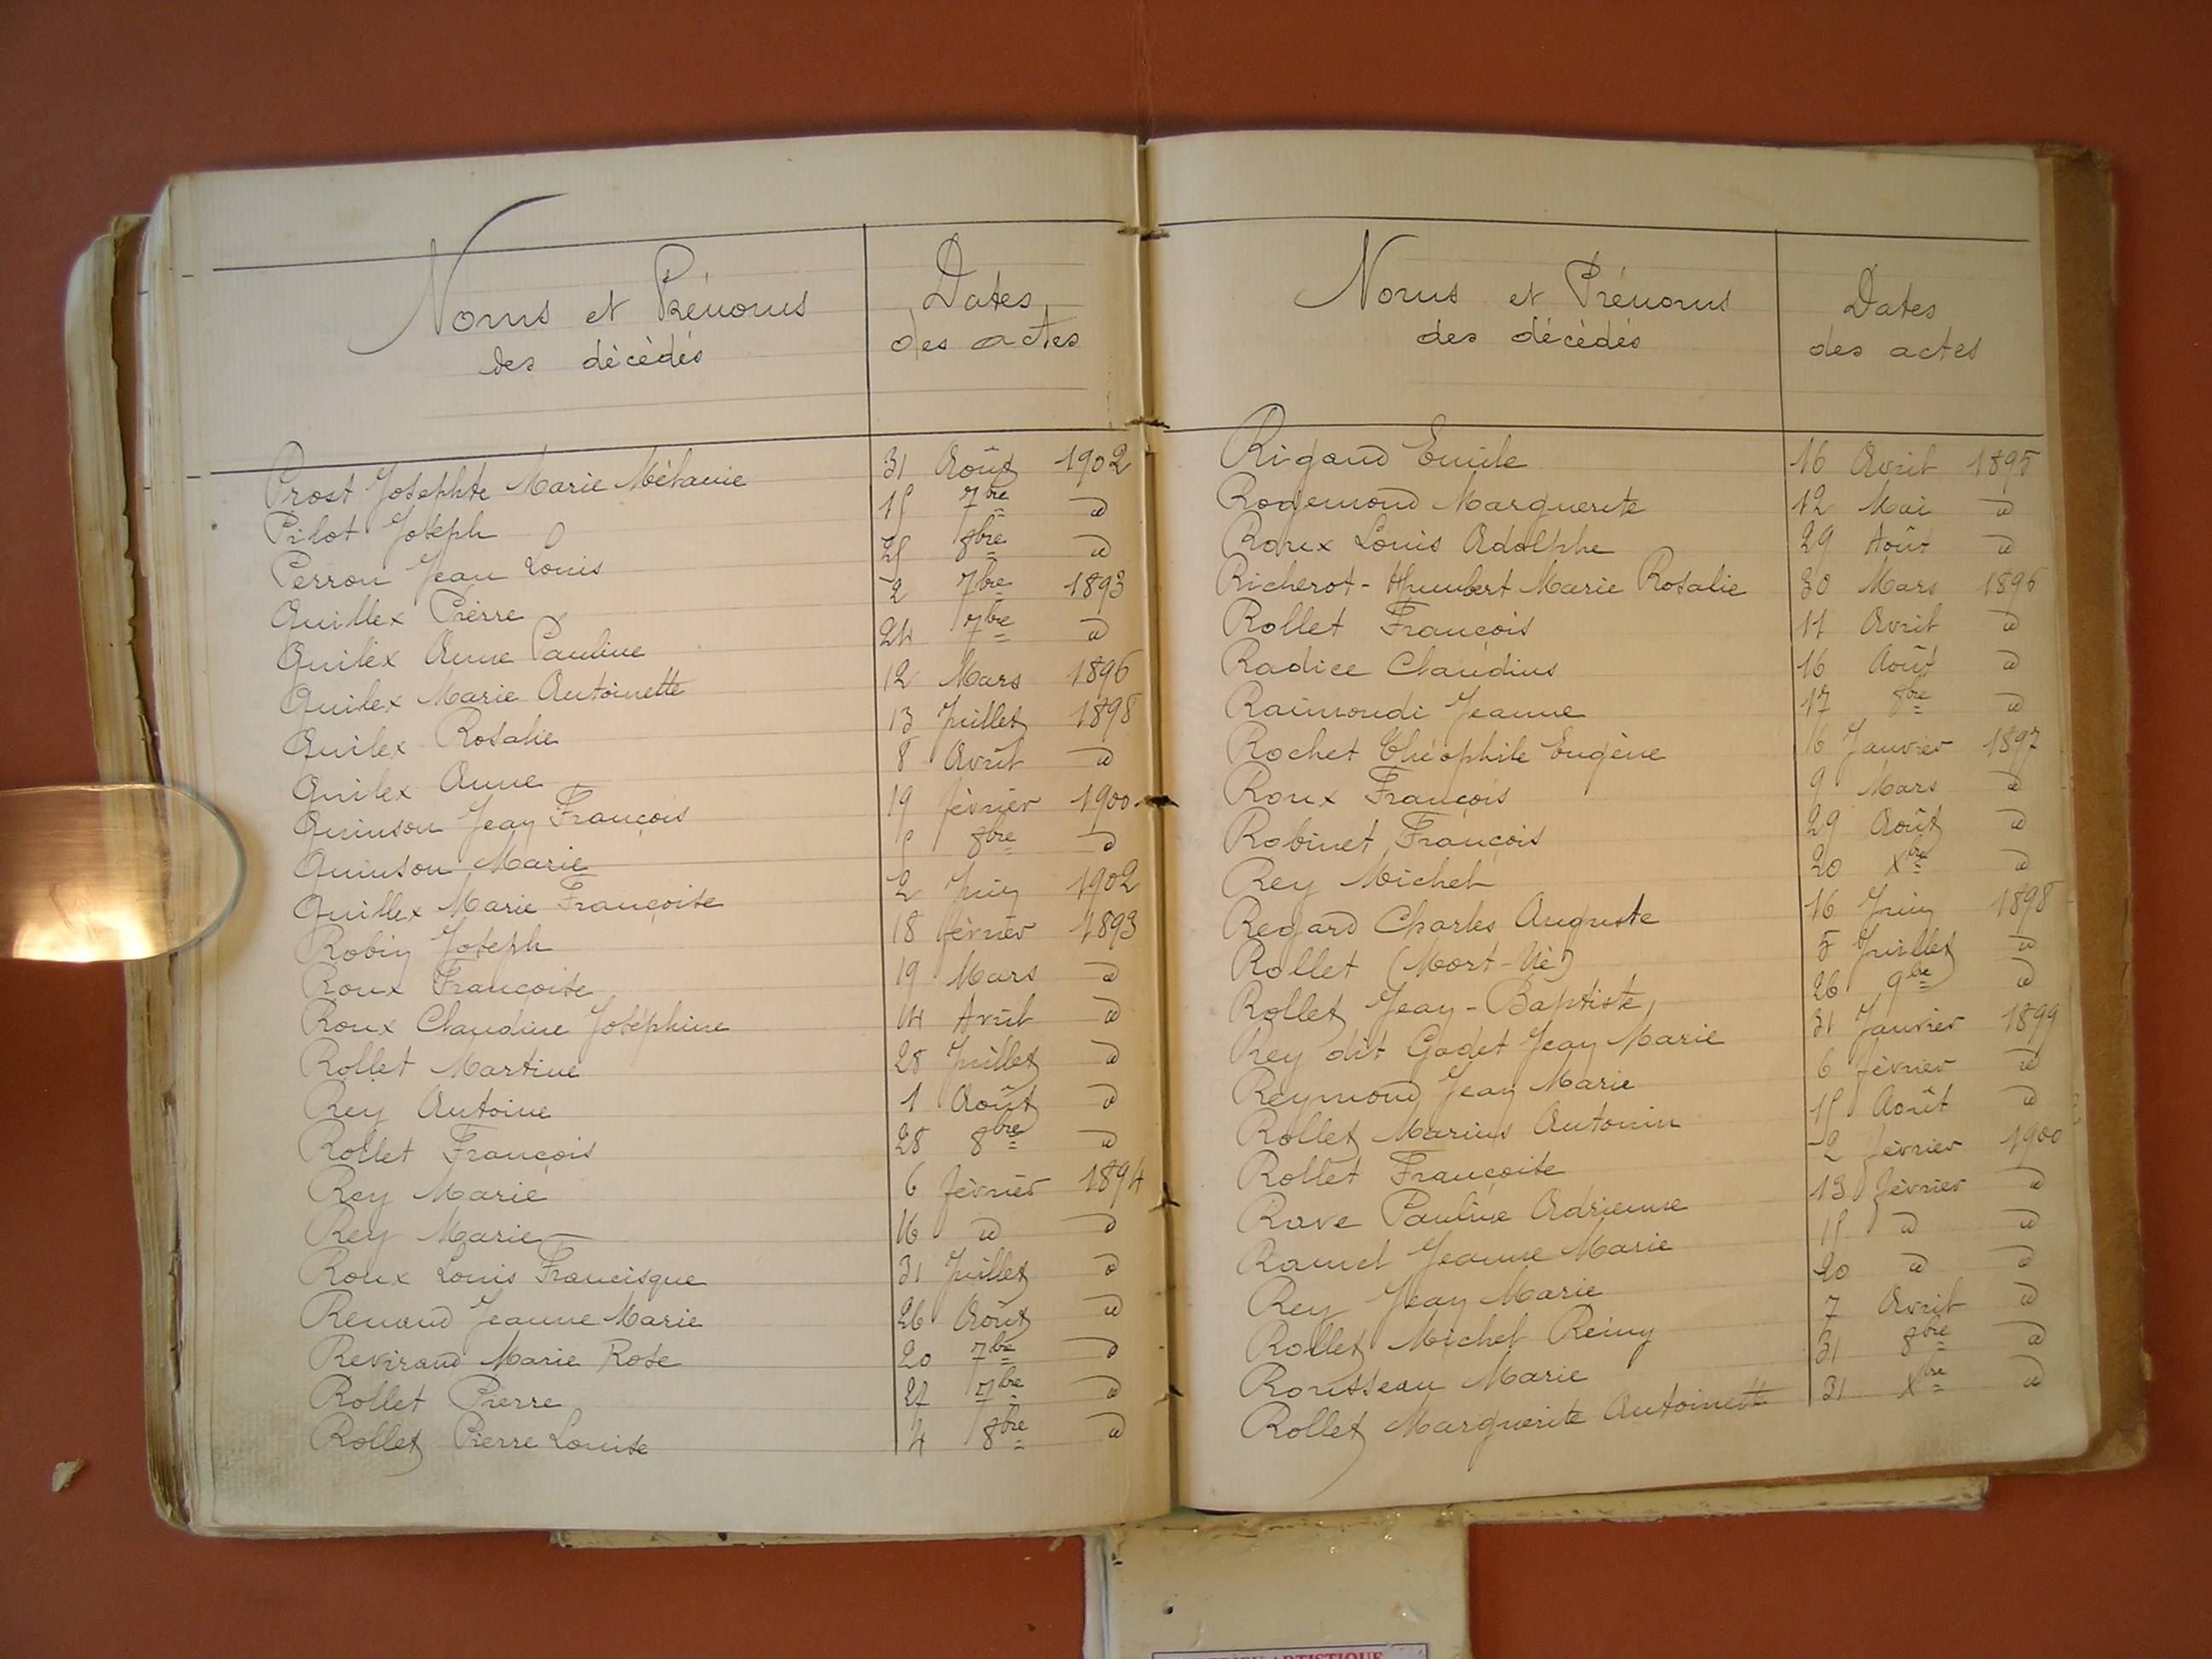 Noms et Prénoms
des décédés
Dates
des actes
Prost Josephte Marie Mélanie 31 Août 1902
Pilot Joseph 15 7bre d
Perron Jean Louis 25 8bre d
Quillex Pierre 2 7bre 1893
Quilex Anne Pauline 24 7bre d
Quilex Marie Antoinette 12 Mars 1896
Quilex Rosalie 13 Juillet 1898
Quilex Anne 8 Avril d
Quinson Jean François 19 février 1900
Quinson Marie 8bre d
Quillex Marie Françoise 2 Juin 1902
Robin Joseph 18 février 1893
Roux Françoise 19 Mars d
Roux Claudine Joséphine 14 Avril d
Rollet Martine 28 Juillet d
Rey Antoine 1 Août d
Rollet François 28 8bre d
Rey Marie 6 février 1894
Rey Marie 16 d d
Roux Louis Francisque 31 Juillet d
Renaud Jeanne Marie 26 Août d
Revirand Marie Rose 20 7bre d
Rollet Pierre 27 7bre d
Rollet Pierre Louise 4 8bre d
Noms et Prénoms
des décédés
Dates
des actes
Rigaud Emile 16 Avril 1895
Rogemond Marguerite 12 Mai d
Roux Louis Adolphe 29 Août d
Richerot-Humbert Marie Rosalie 30 Mars 1896
Rollet François 11 Avril d
Radice Claudius 16 Août d
Raimondi Jeanne 17 8bre d
Rochet Théophile Eugène 16 Janvier 1897
Roux François 9 Mars d
Robinet François 29 Août d
Rey Michel 20 Xbre d
Regard Charles Auguste 16 Juin 1898
Rollet (Mort-Né) 5 Juillet d
Rollet Jean-Baptiste 26 9bre d
Rey dit Godet Jean Marie 31 Janvier 1899
Reymond Jean Marie 6 février d
Rollet Marius Antonin 15 Août d
Rollet Françoise 2 février 1900
Rave Pauline Adrienne 13 février d
Ramel Jeanne Marie 15 d d
Rey Jean Marie 20 d d
Rollet Michel Rémy 7 Avril d
Rousseau Marie 31 8bre d
Rollet Marguerite Antoinette 31 Xbre d
ARTISTIQUE